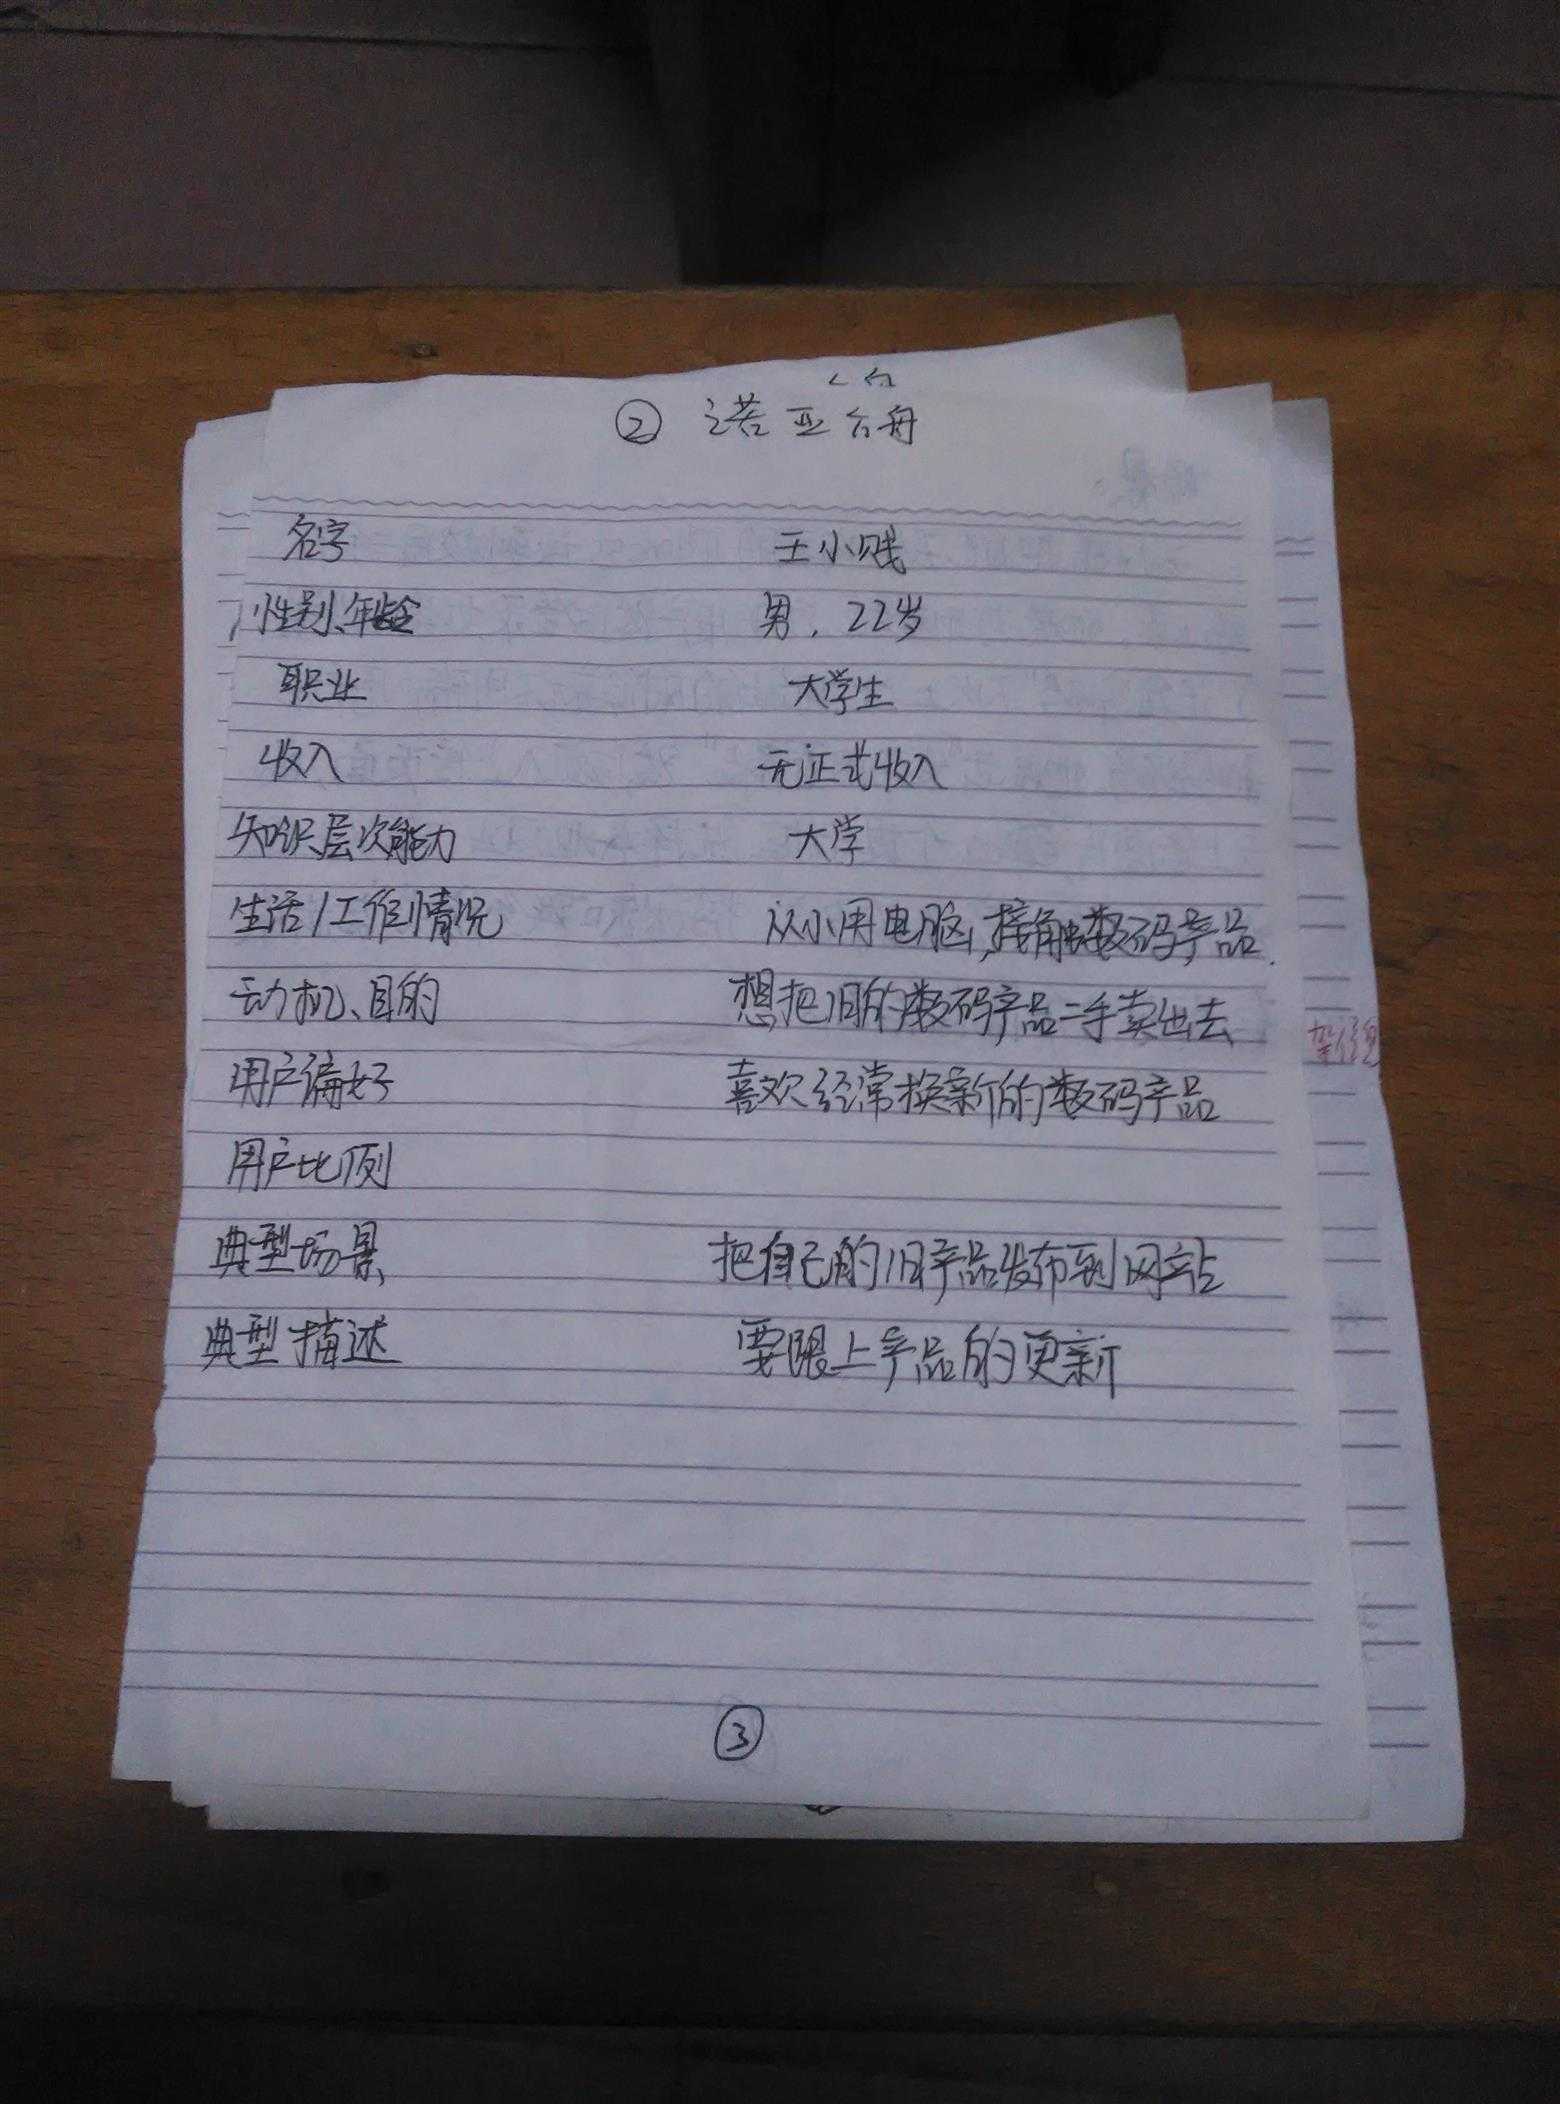 ② 诺亚方舟
名字 王小贱
性别、年龄 男，22岁
职业 大学生
收入 无正式收入
知识层次能力 大学
生活/工作情况 从小用电脑，接触数码产品.
动机、目的 想把旧的数码产品二手卖出去
用户偏好 喜欢经常换新的数码产品
用户比例
典型场景 把自己的旧产品发布到网站
典型描述 要跟上产品的更新
③